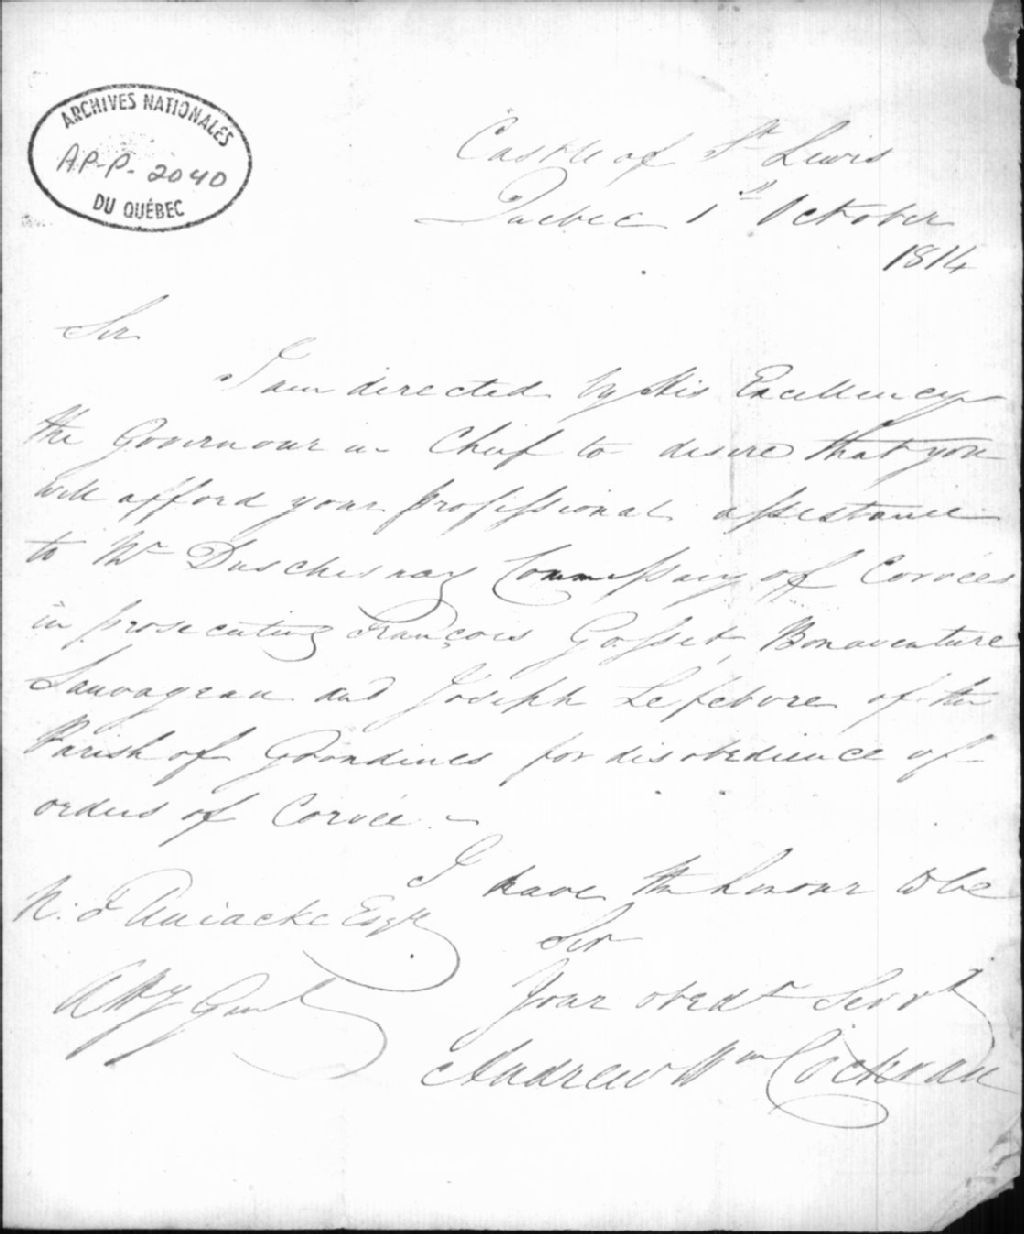 ARCHIVES NATIONALES
AP-P. 2040
DU QUÉBEC
Castle of St Lewis
Quebec 1st October
1814
Sir
I am directed by His Excellency
the Governour in Chief to desire that you
will afford your professional assistance
to Mr Duschesnay Commissary of Corvées
in prosecuting François Gosset, Bonaventure
Sauvageau and Joseph Lefebvre of the
Parish of Grondines for disobedience of
orders of Corvée –
I have the honour to be
N. F Uniacke Esqr
Sir
Your obedt Servt
Atty Genl
Andrew Wm Cochran